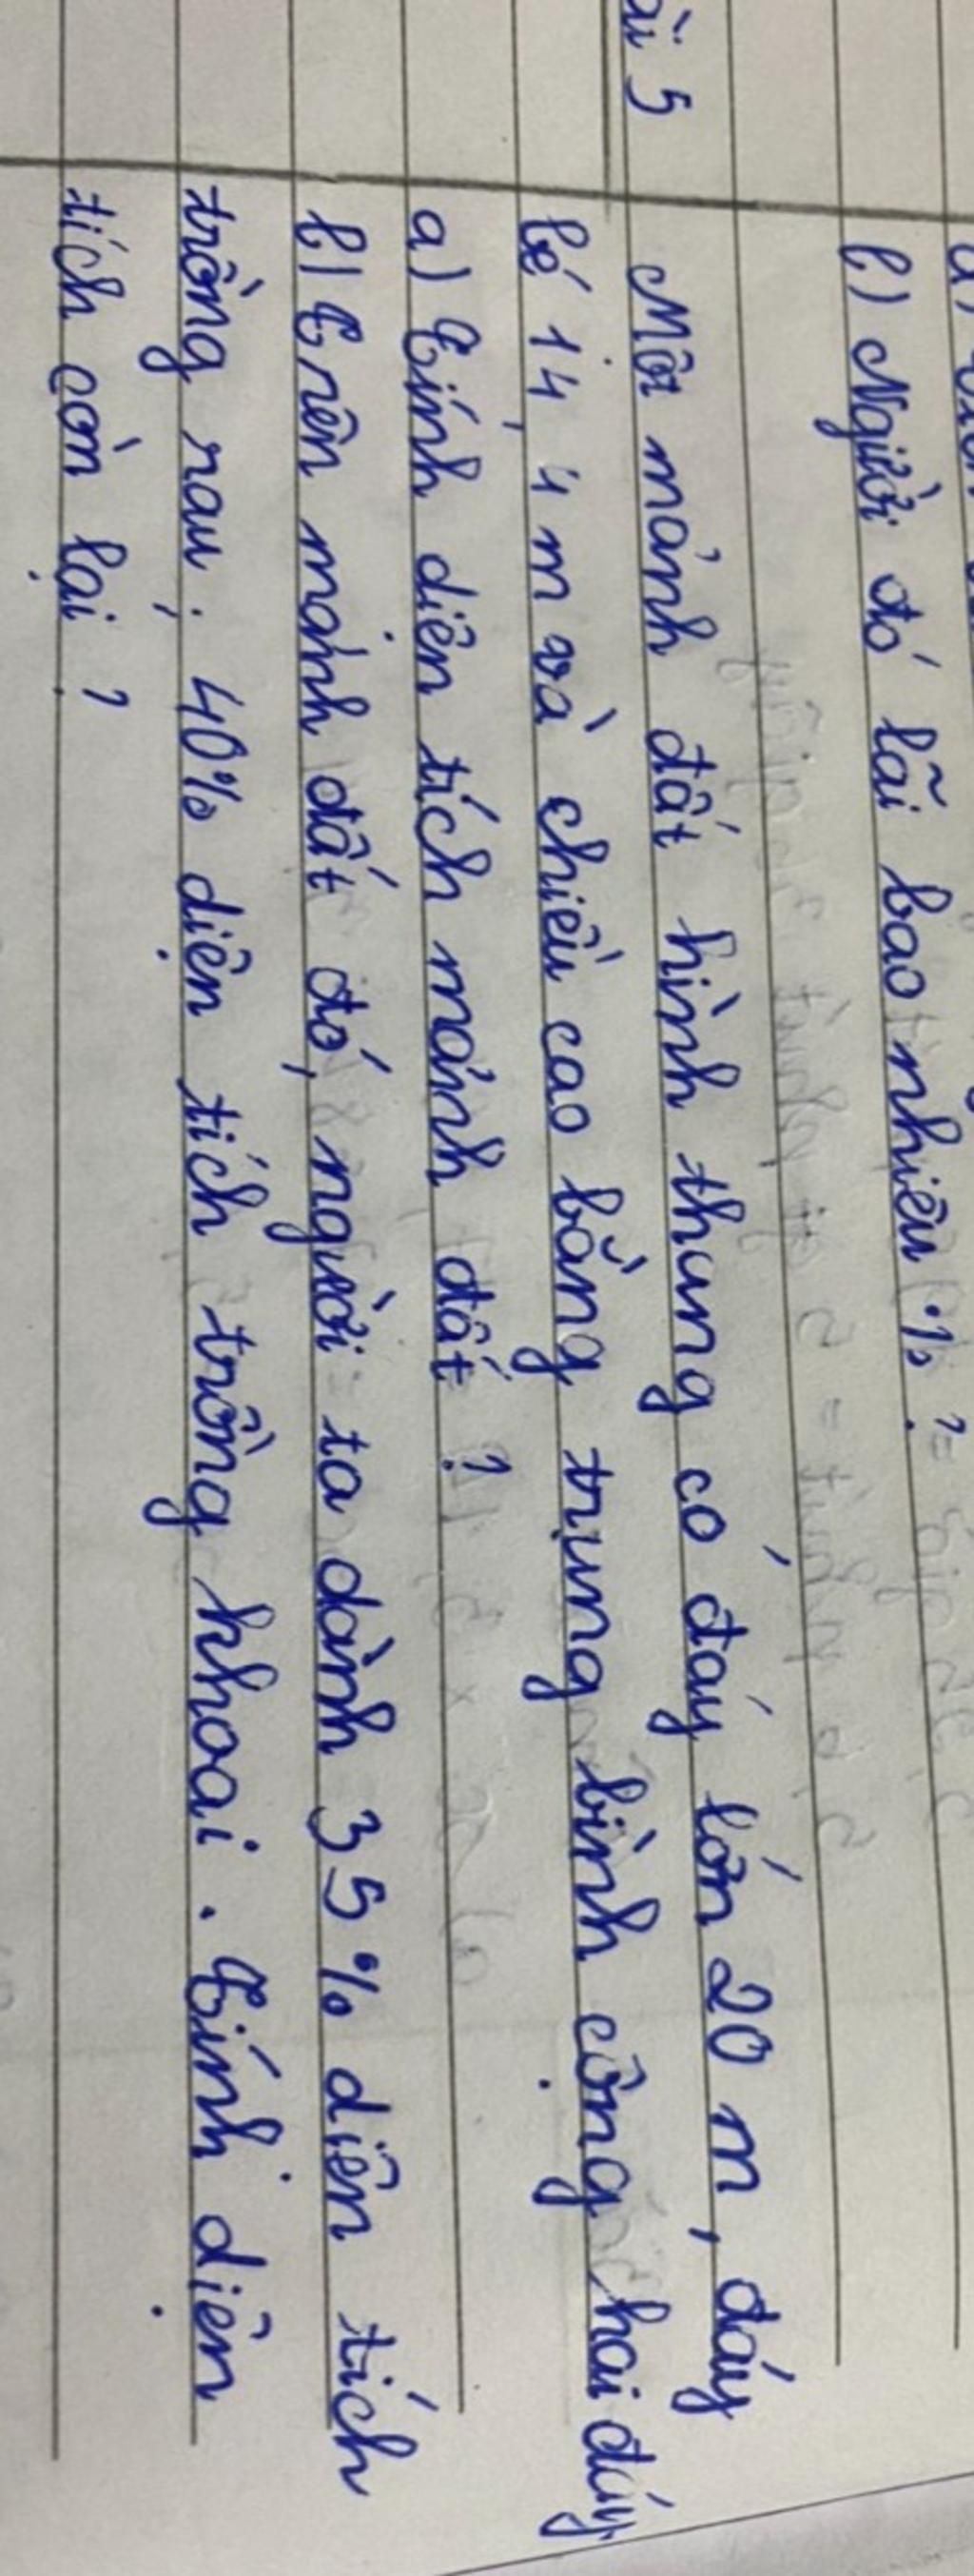 b) Người đó lãi bao nhiêu % ?
ài 5 Một mảnh đất hình thang có đáy lớn 20 m, đáy
bé 14,4 m và chiều cao bằng trung bình cộng hai đáy
a) Tính diện tích mảnh đất ?
b) Trên mảnh đất đó, người ta dành 35% diện tích
trồng rau; 40% diện tích trồng khoai. Tính diện
tích còn lại ?